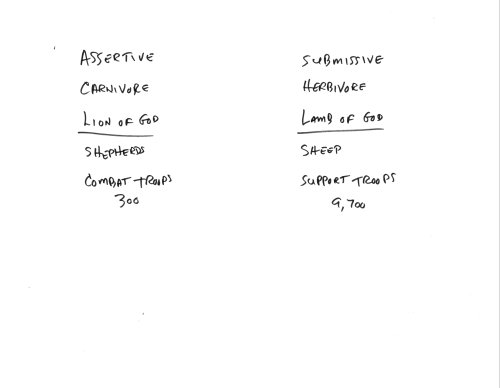 ASSERTIVE
CARNIVORE
LION OF GOD
SHEPHERDS
COMBAT TROOPS
300
SUBMISSIVE
HERBIVORE
LAMB OF GOD
SHEEP
SUPPORT TROOPS
9,700